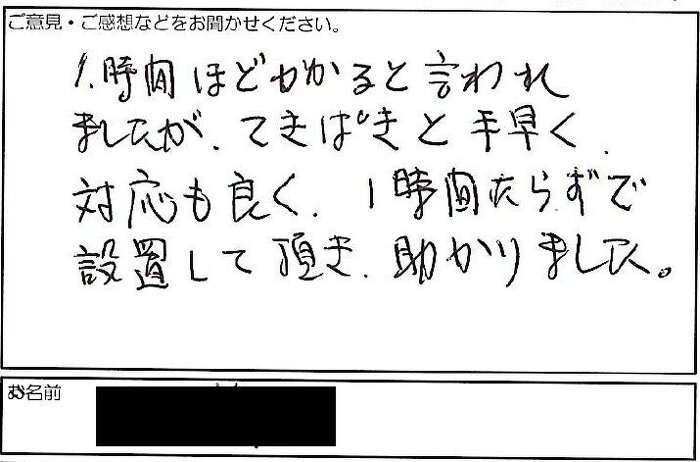 ご意見・ご感想などをお聞かせください。
1.時間ほどかかると言われ
ましたが、てきぱきと手早く、
対応も良く、1時間たらずで
設置して頂き、助かりました。
お名前